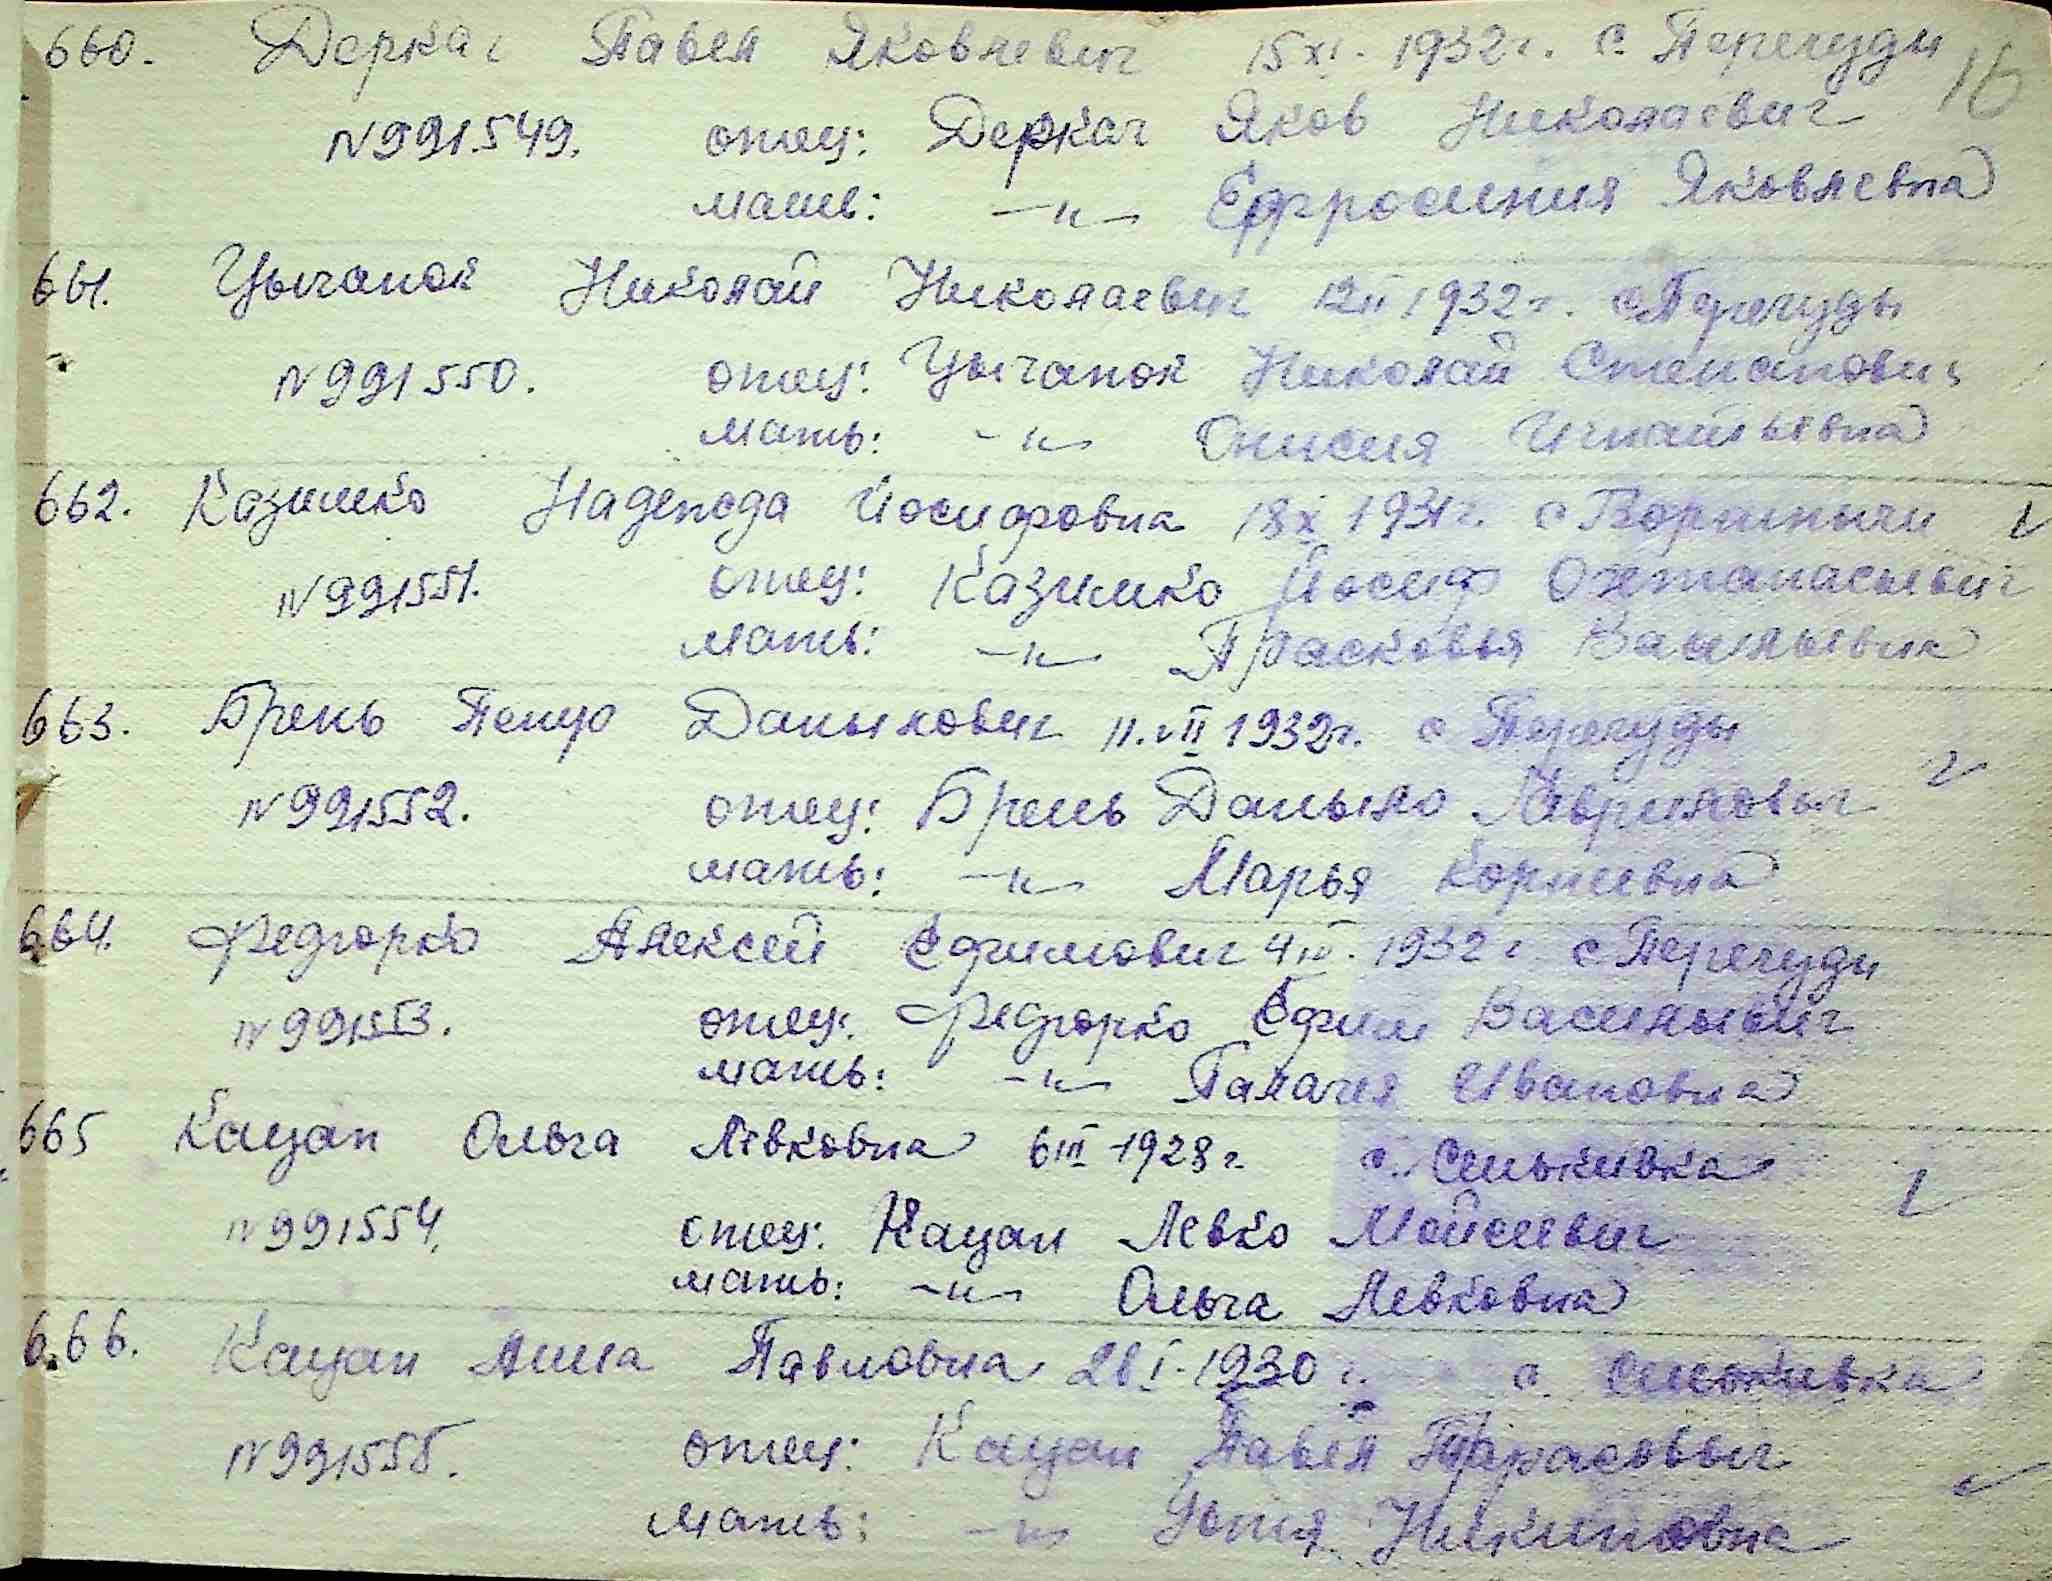 660. Деркач Павел Яковлевич 15 XI. 1932г. с. Перегуды 16
N991549. отец: Деркач Яков Николаевич
мать: —"— Ефросиния Яковлевна
661. Цыганок Николай Николаевич 12 II 1932г. с Перегуды
N991550. отец: Цыганок Николай Степанович
мать: —"— Онисия Игнатьевна
662. Казимко Надежда Йосифовна 18 X 1931г. с
N991551. отец: Казимко Йосиф
мать: —"— Прасковья Васильевна
663. Брень Данилович 11. VII 1932г. с Перегуды
N991552. отец: Брень Данило
мать: —"— Марья Корниевна
664. Федорко Алексей Ефимович 4 III. 1932г. с Перегуды
N991553. отец: Федорко Ефим Васильевич
мать: —"— Палагея Ивановна
665 Кацан Ольга Левковна 6 III 1928г. с. Сенькивка
N991554. отец: Кацан Левко Мойсеевич
мать: —"— Ольга Левковна
666. Кацан Анна Павловна 26 I. 1930г. с. Сенькивка
N991555. отец: Кацан Павел Тарасовыч
мать: —"— Устя Никитовна